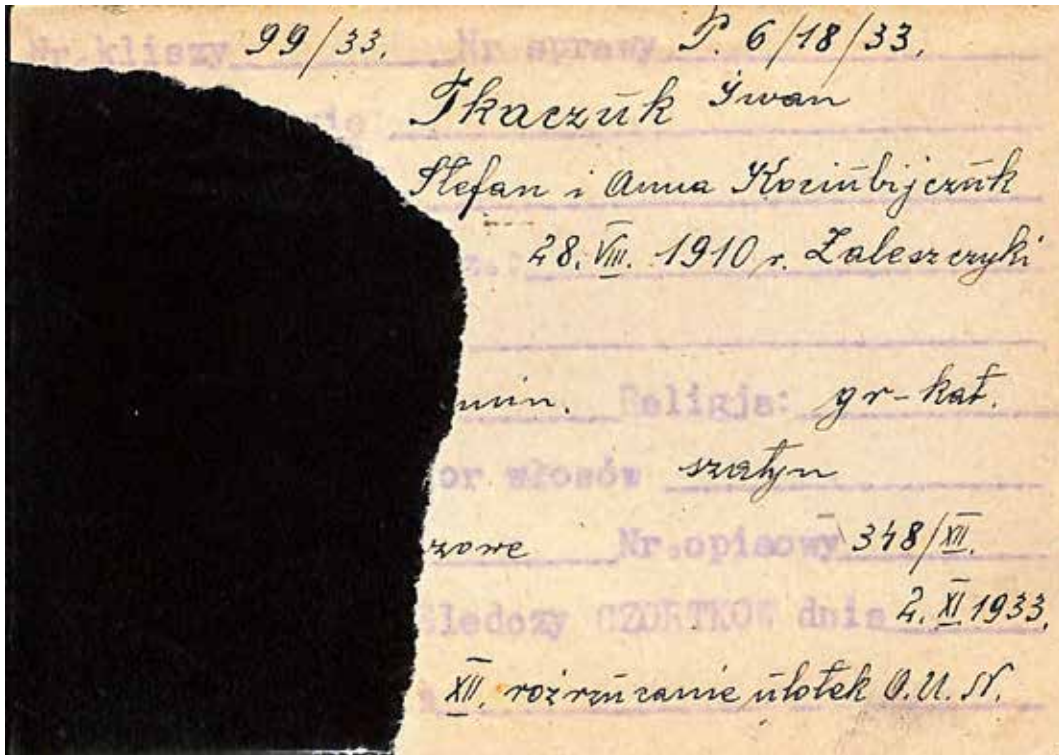 Nr. kliszy 99/33. Nr sprawy P. 6/18/33.
Tkaczuk Iwan
Stefan i Anna Kociubijczuk
28. VIII. 1910 r. Zaleszczyki
Religja: gr-kat.
or włosów szatyn
zowe Nr. opisowy 348/XII.
ledczy CZORTKOW dnia 2. XI 1933.
XII. rozrzucanie ulotek O.U.N.